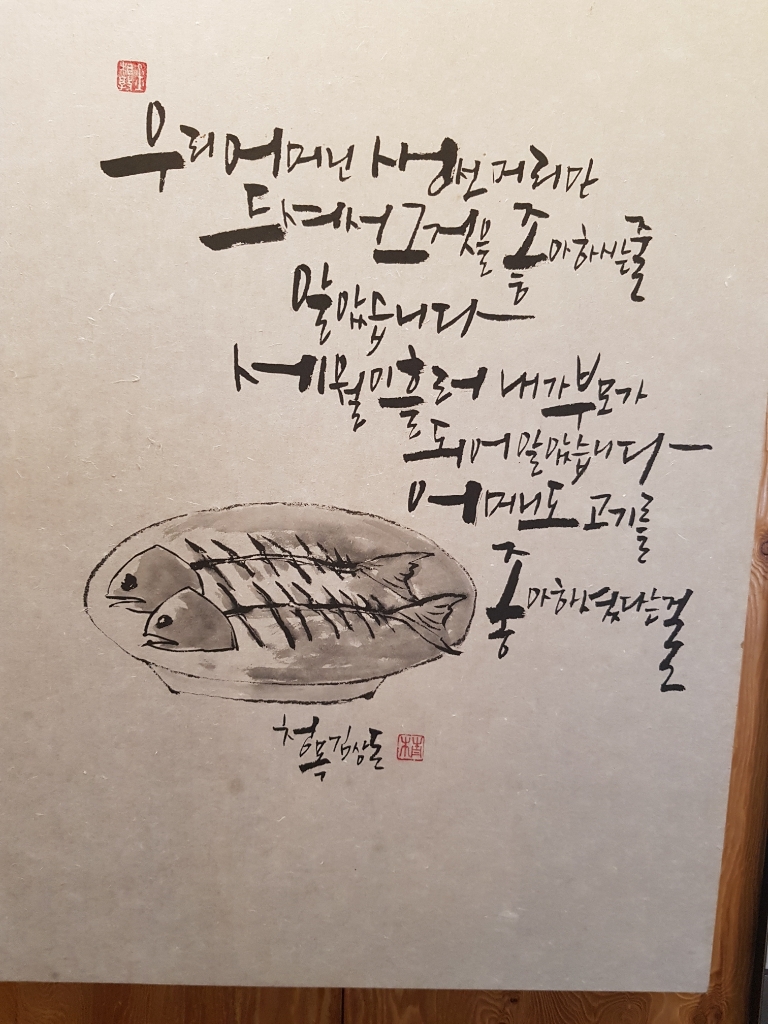 우리 어머닌 생선 머리만
드셔서 그것을 좋아하시는줄
알았습니다
세월이 흘러 내가 부모가
되어 알았습니다
어머니도 고기를
좋아하셨다는걸
청목 김상돈